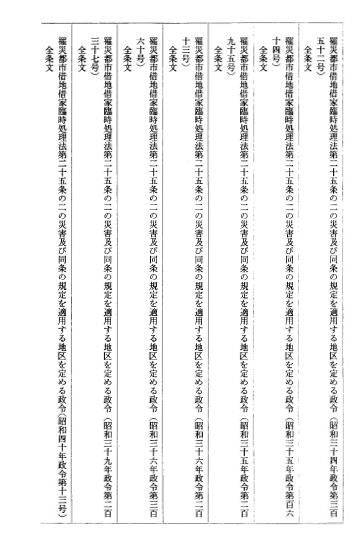 罹災都市借地借家臨時処理法第二十五条の二の災害及び同条の規定を適用する地区を定める政令（昭和三十四年政令第三百
五十二号）
全条文
罹災都市借地借家臨時処理法第二十五条の二の災害及び同条の規定を適用する地区を定める政令（昭和三十五年政令第百六
十四号）
全条文
罹災都市借地借家臨時処理法第二十五条の二の災害及び同条の規定を適用する地区を定める政令（昭和三十五年政令第二百
九十五号）
全条文
罹災都市借地借家臨時処理法第二十五条の二の災害及び同条の規定を適用する地区を定める政令（昭和三十六年政令第二百
十三号）
全条文
罹災都市借地借家臨時処理法第二十五条の二の災害及び同条の規定を適用する地区を定める政令（昭和三十六年政令第三百
六十号）
全条文
罹災都市借地借家臨時処理法第二十五条の二の災害及び同条の規定を適用する地区を定める政令（昭和三十九年政令第二百
三十七号）
全条文
罹災都市借地借家臨時処理法第二十五条の二の災害及び同条の規定を適用する地区を定める政令（昭和四十年政令第十三号）
全条文